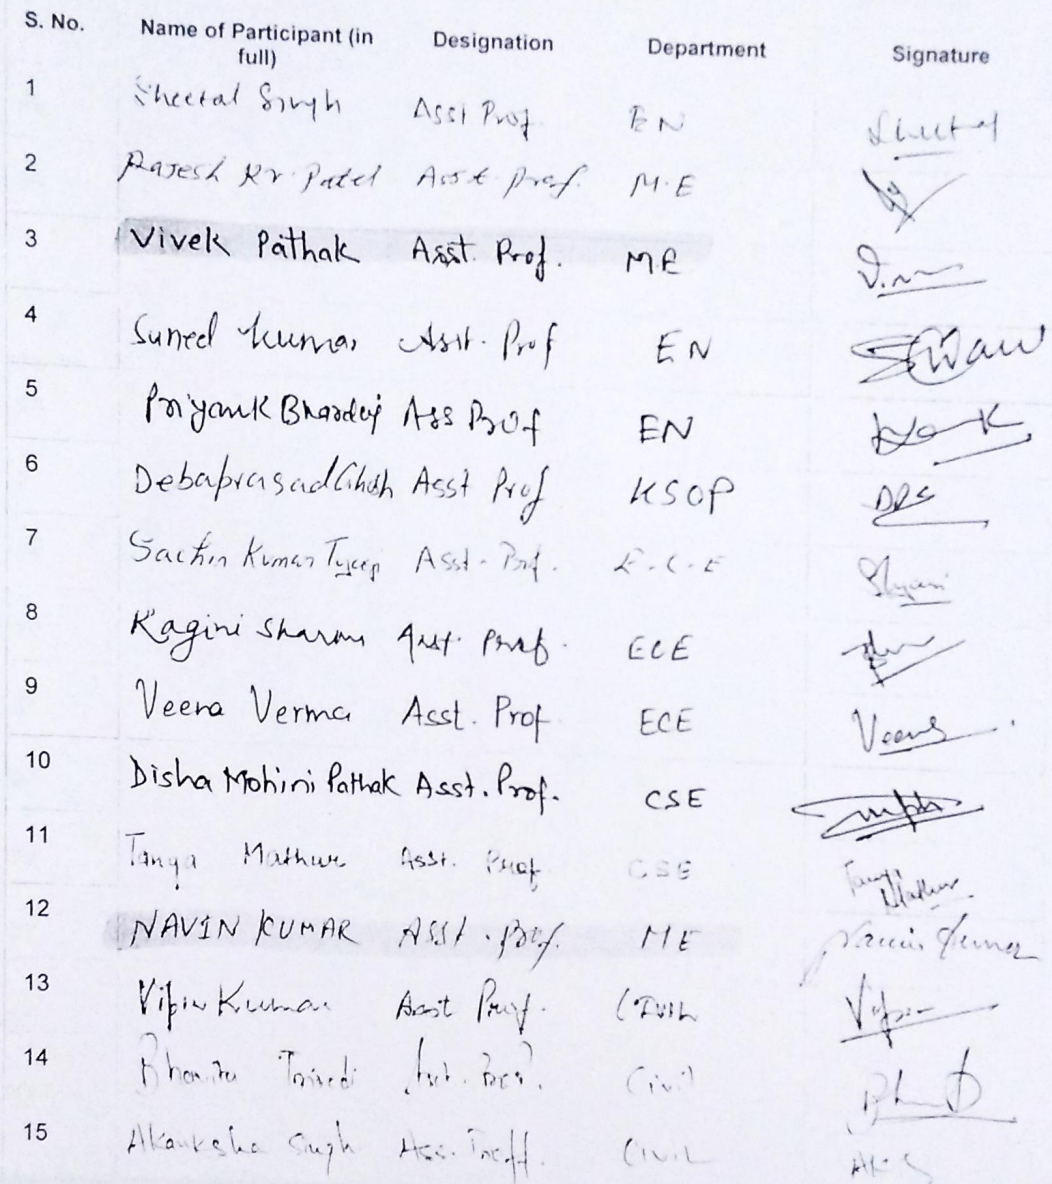 S. No. Name of Participant (in full) Designation Department Signature
1 Sheetal Singh Asst Prof. EN Sheetal
2 Rajesh Kr. Patel Asst. prof. M.E
3 Vivek Pathak Asst. Prof. ME
4 Suneel Kumar Asst. Prof EN
5 Priyank Bhardwaj Ass Prof EN
6 Debaprasad Ghosh Asst Prof KSOP
7 Sachin Kumar Tyagi Asst. Prof. E.C.E
8 Ragini Sharma Asst. Prof. ECE
9 Veena Verma Asst. Prof ECE Veena
10 Disha Mohini Pathak Asst. Prof. CSE
11 Tanya Mathur Asst. Prof CSE Tanya Mathur
12 NAVIN KUMAR Asst. Prof. ME Navin Kumar
13 Vipin Kumar Asst Prof. CIVIL Vipin
14 Trivedi Asst. Prof. Civil
15 Akanksha Singh Ass. Proff. CIVIL